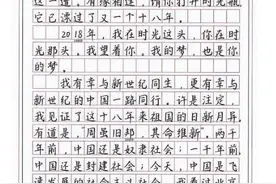 请你打开时光瓶
它已漂过了又一个十八年。
2018年，我在时光这头，你在时
光那头。我望着你，我的梦，也是你
的梦。
我有幸与新世纪同生，更有幸与
新世纪的中国一路同行。许是注定，
我见证了这十八年来祖国的日新月异。
有道是，“周虽旧邦，其命维新”，两千
年前，中国还是奴隶社会；一千年
前，中国还是封建社会；今天，中国是飞